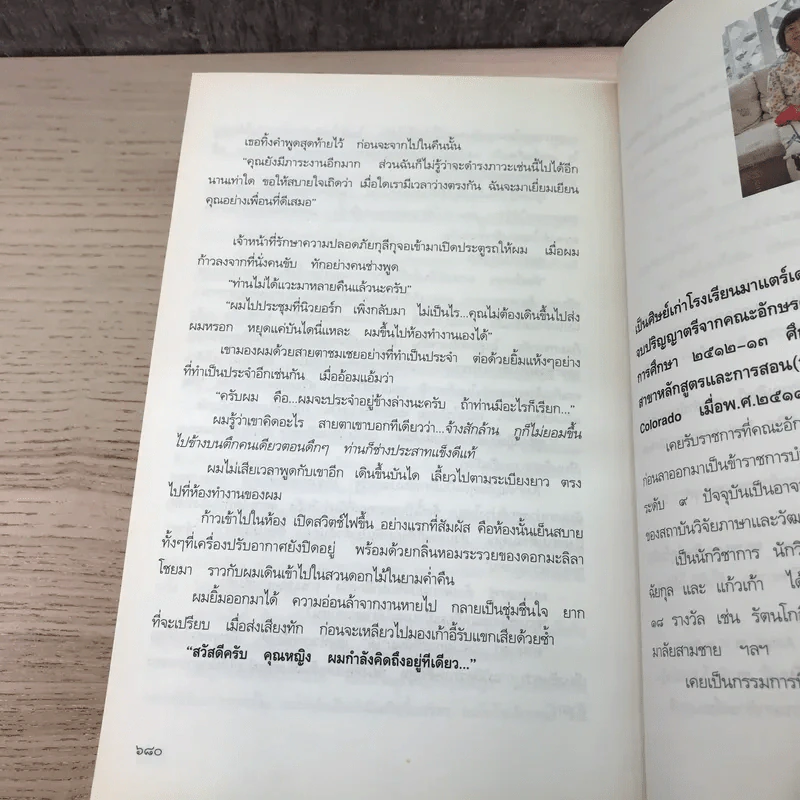 เธอทิ้งคำพูดสุดท้ายไว้ ก่อนจะจากไปในคืนนั้น
“คุณยังมีภาระงานอีกมาก ส่วนฉันก็ไม่รู้ว่าจะดำรงภาวะเช่นนี้ไปได้อีก
นานเท่าใด ขอให้สบายใจเถิดว่า เมื่อใดเรามีเวลาว่างตรงกัน ฉันจะมาเยี่ยมเยียน
คุณอย่างเพื่อนที่ดีเสมอ”
เจ้าหน้าที่รักษาความปลอดภัยกุลีกุจอเข้ามาเปิดประตูรถให้ผม เมื่อผม
ก้าวลงจากที่นั่งคนขับ ทักอย่างคนช่างพูด
“ท่านไม่ได้แวะมาหลายคืนแล้วนะครับ”
“ผมไปประชุมที่นิวยอร์ก เพิ่งกลับมา ไม่เป็นไร...คุณไม่ต้องเดินขึ้นไปส่ง
ผมหรอก หยุดแค่บันไดนี่แหละ ผมขึ้นไปห้องทำงานเองได้”
เขามองผมด้วยสายตาชมเชยอย่างที่ทำเป็นประจำ ต่อด้วยยิ้มแห้งๆอย่าง
ที่ทำเป็นประจำอีกเช่นกัน เมื่ออ้อมแอ้มว่า
“ครับผม คือ...ผมจะประจำอยู่ข้างล่างนะครับ ถ้าท่านมีอะไรก็เรียก...”
ผมรู้ว่าเขาคิดอะไร สายตาเขาบอกทีเดียวว่า...จ้างสักล้าน กูก็ไม่ยอมขึ้น
ไปข้างบนตึกคนเดียวตอนดึกๆ ท่านก็ช่างประสาทแข็งดีแท้
ผมไม่เสียเวลาพูดกับเขาอีก เดินขึ้นบันได เลี้ยวไปตามระเบียงยาว ตรง
ไปที่ห้องทำงานของผม
ก้าวเข้าไปในห้อง เปิดสวิตช์ไฟขึ้น อย่างแรกที่สัมผัส คือห้องนั้นเย็นสบาย
ทั้งๆที่เครื่องปรับอากาศยังปิดอยู่ พร้อมด้วยกลิ่นหอมระรวยของดอกมะลิลา
โชยมา ราวกับผมเดินเข้าไปในสวนดอกไม้ในยามค่ำคืน
ผมยิ้มออกมาได้ ความอ่อนล้าจากงานหายไป กลายเป็นชุ่มชื่นใจ ยาก
ที่จะเปรียบ เมื่อส่งเสียงทัก ก่อนจะเหลียวไปมองเก้าอี้รับแขกเสียด้วยซ้ำ
“สวัสดีครับ คุณหญิง ผมกำลังคิดถึงอยู่ทีเดียว...”
๖๘๐
เป็นศิษย์เก่าโรงเรียนมาแตร์เด
จบปริญญาตรีจากคณะอักษร
การศึกษา ๒๕๑๒-๑๓
สาขาหลักสูตรและการสอน
Colorado เมื่อพ.ศ.๒๕๑
เคยรับราชการที่คณะอัก
ก่อนลาออกมาเป็นข้าราชการบำ
ระดับ ๙ ปัจจุบันเป็นอาจ
ของสถาบันวิจัยภาษาและวัฒ
เป็นนักวิชาการ นักวิ
ฉัยกุล และ แก้วเก้า ได้
๑๘ รางวัล เช่น รัตนโก
มาลัยสามชาย ฯลฯ
เคยเป็นกรรมการที่